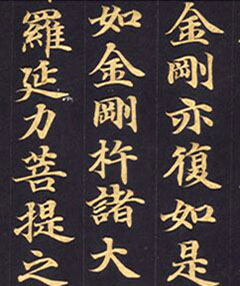 金剛亦復如是
如金剛杵諸大
羅延力菩提之